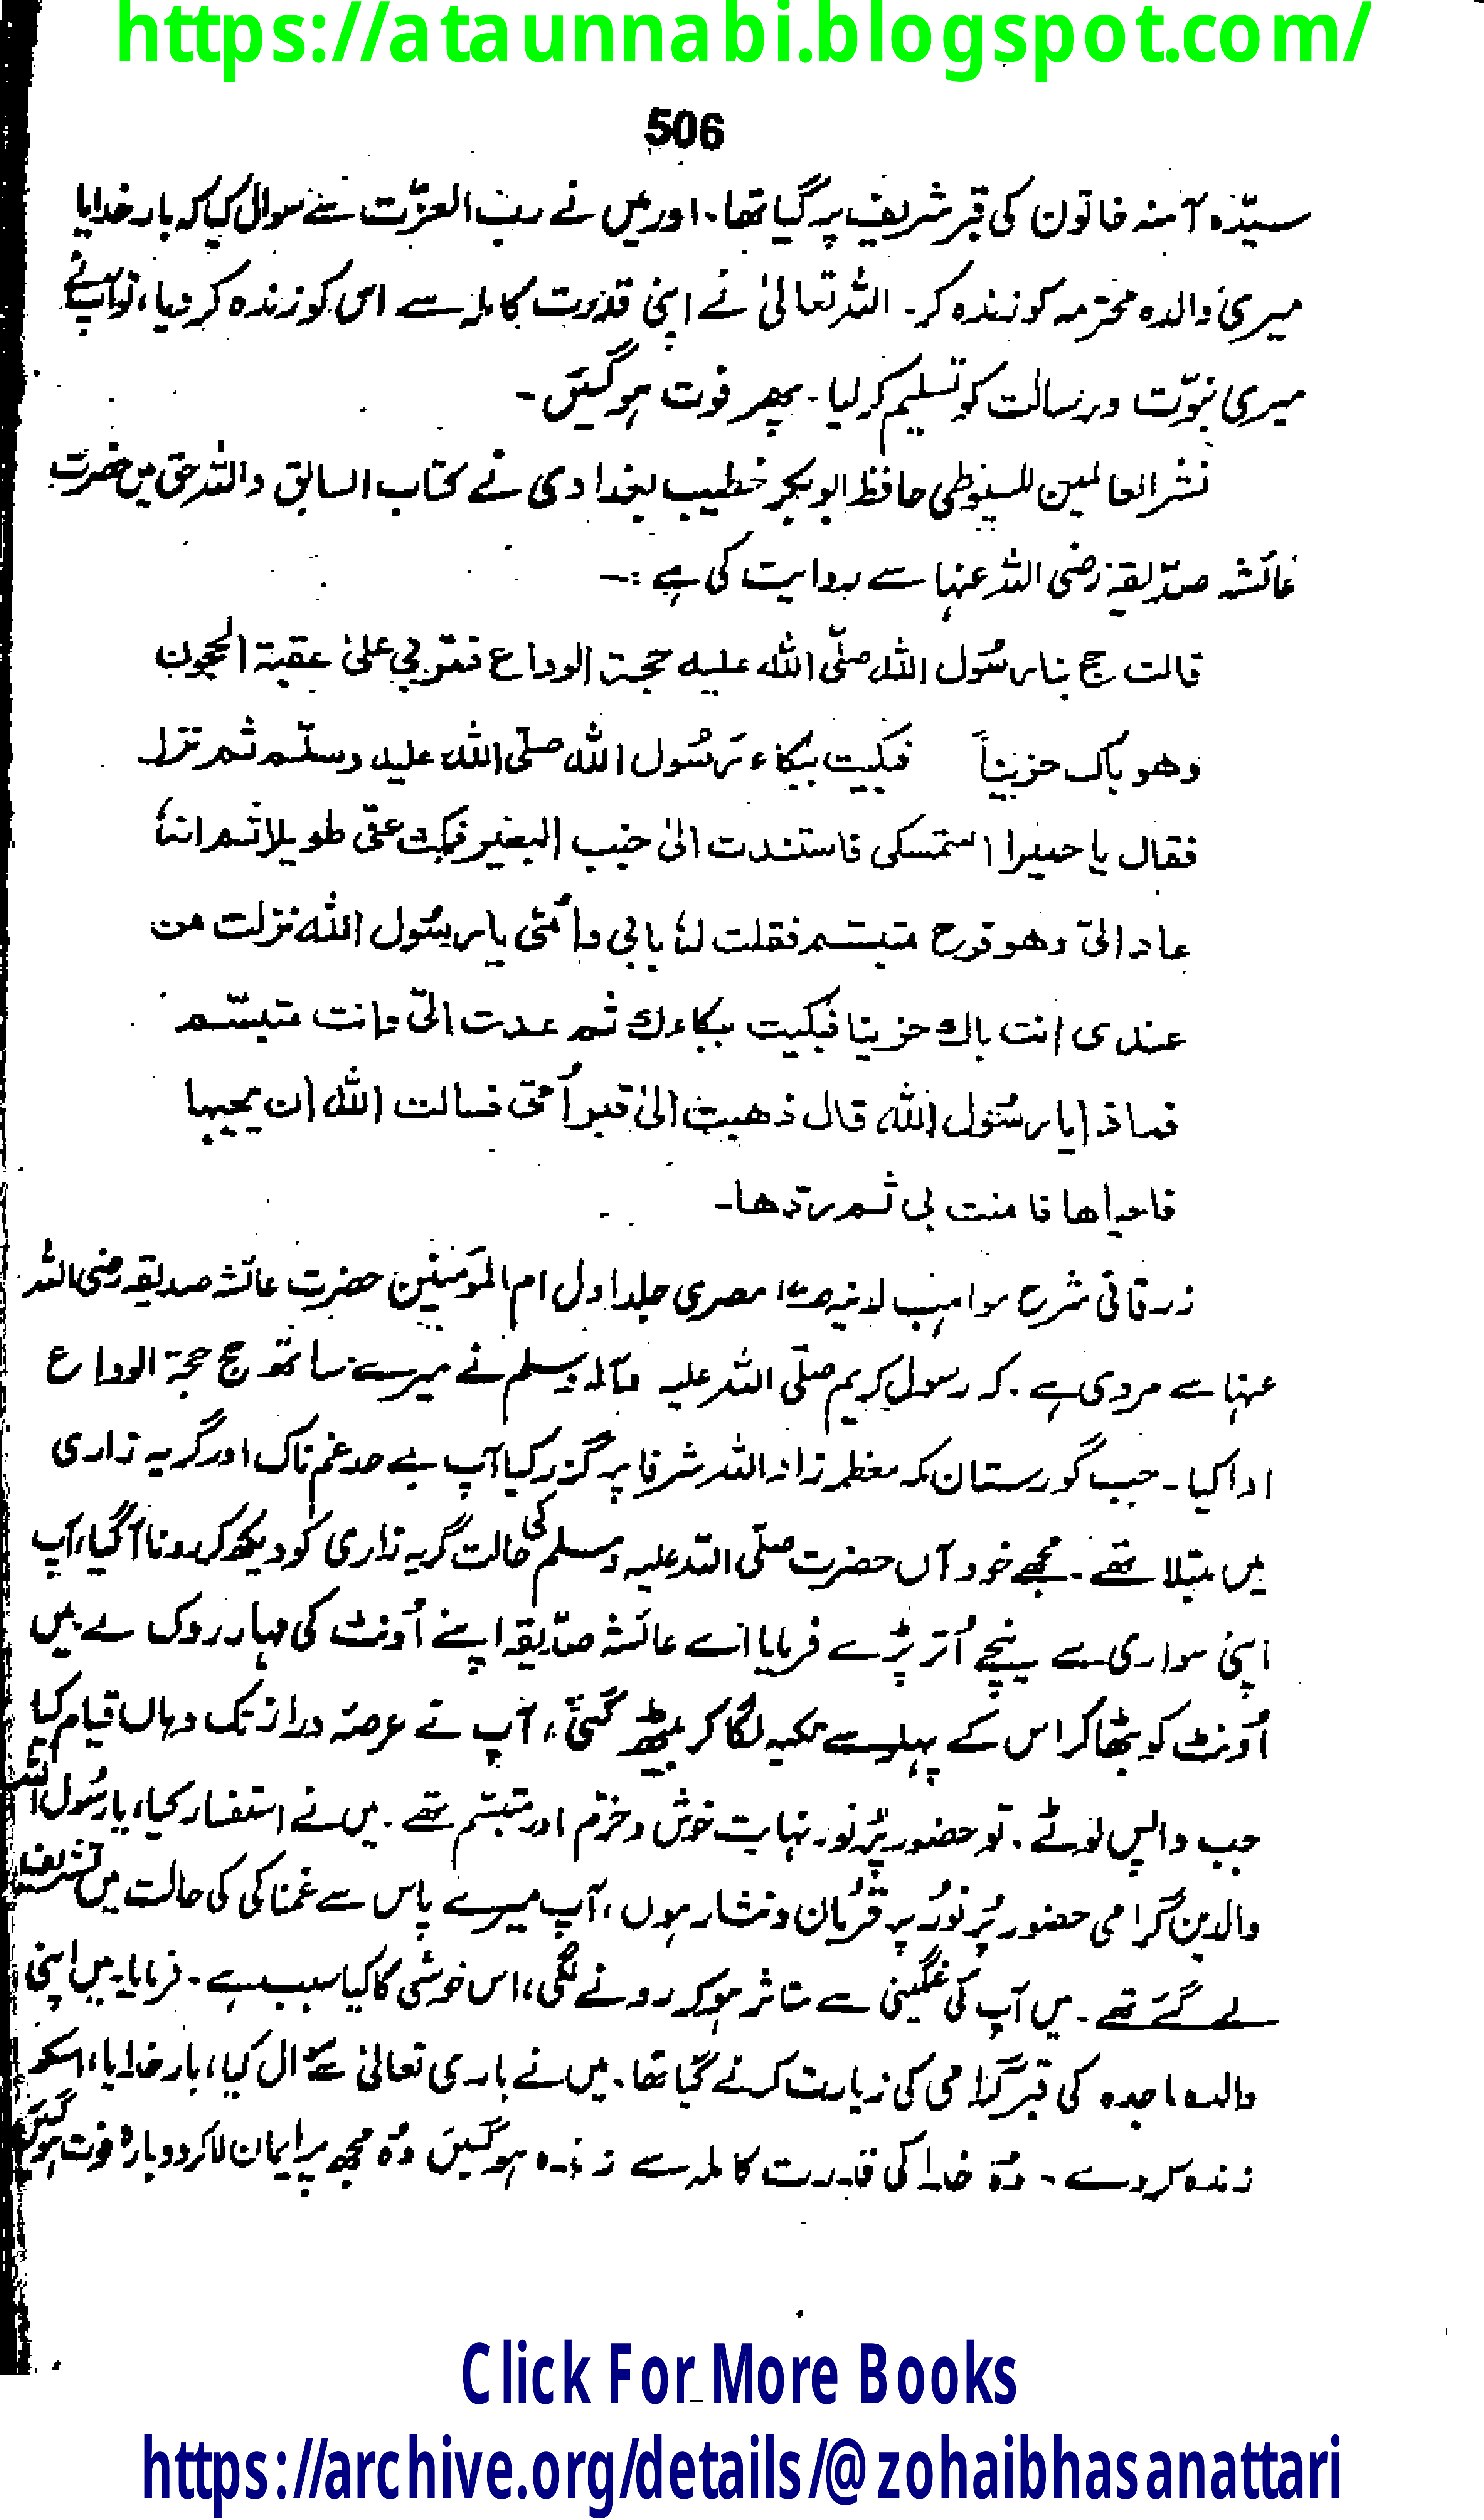 https://ataunnabi.blogspot.com/
506
سیّدہ آمنہ خاتون کی قبر شریف پر گیا تھا۔ اور میں نے رب العزّت سے سوال کیا کہ بار خدایا
میری والدہ محترمہ کو زندہ کر۔ اللہ تعالیٰ نے اپنی قدرت کاملہ سے اس کو زندہ کر دیا، تو آپ نے
میری نبوّت و رسالت کو تسلیم کر لیا۔ پھر فوت ہو گئیں۔
نشر العالمین للسیوطی حافظ ابوبکر خطیب بغدادی نے کتاب السابق واللاحق میں حضرت
عائشہ صدّیقہ رضی اللہ عنہا سے روایت کی ہے :۔
قالت حج بنا رسُول اللہ صلّی اللہ علیہ حجۃ الوداع فمر بی علیٰ عقبۃ الحجون
وھو باک حزیناً فبکیت ببکاء رسُول اللہ صلّی اللہ علیہ وسلّم ثم نزل
فقال یا حمیرا استمسکی فاستندت الیٰ جنب البعیر فمکث عنّی طویلا ثم انہٗ
عاد الیّ وھو فرح متبسّم فقلت لہٗ بابی واُمّی یا رسُول اللہ نزلت من
عندی انت باك حزینا فبکیت ببکاءك ثم عدت الیّ وانت متبسّم
فماذا یا رسُول اللہ قال ذھبت الیٰ قبر اُمّی فسالت اللہ ان یحییھا
فاحیاھا فامنت بی ثم ردّھا۔
زرقانی شرح مواہب لدنیہ مصری جلد اول ام المؤمنین حضرت عائشہ صدیقہ رضی اللہ
عنہا سے مروی ہے۔ کہ رسول کریم صلّی اللہ علیہ وآلہ وسلم نے میرے ساتھ حج حجۃ الوداع
ادا کیا۔ جب گورستان مکہ معظمہ زاد اللہ شرفا پر گزر کیا آپ بے حد غم ناک اور گریہ زاری
میں مبتلا تھے۔ مجھے خود آں حضرت صلّی اللہ علیہ وسلم کی حالت گریہ زاری کو دیکھ کر رونا آ گیا، آپ
اپنی سواری سے نیچے اُتر پڑے فرمایا اے عائشہ صدّیقہ اپنے اُونٹ کی مہار روک لے میں
اُونٹ کو بٹھا کر اس کے پہلو سے تکیہ لگا کر بیٹھ گئی، آپ نے عرصۂ دراز تک وہاں قیام کیا
جب واپس لوٹے۔ تو حضور پُرنور نہایت خوش و خرّم اور متبسّم تھے۔ میں نے استفسار کیا، یا رسُول اللہ
والدین گرامی حضور پُر نُور پر قُربان و نثار ہوں، آپ میرے پاس سے غمناکی کی حالت میں تشریف
لے گئے تھے۔ میں آپ کی غمگینی سے متاثر ہو کر رونے لگی، اس خوشی کا کیا سبب ہے۔ فرمایا۔ میں اپنی
والدہ ماجدہ کی قبر گرامی کی زیارت کرنے گیا تھا۔ میں نے باری تعالیٰ سے سوال کیا، بار خدایا، اسکو
زندہ کر دے۔ وُہ خدا کی قدرت کاملہ سے زندہ ہو گئیں وُہ مجھ پر ایمان لا کر دوبارہ فوت ہو گئیں
Click For More Books
https://archive.org/details/@zohaibhasanattari